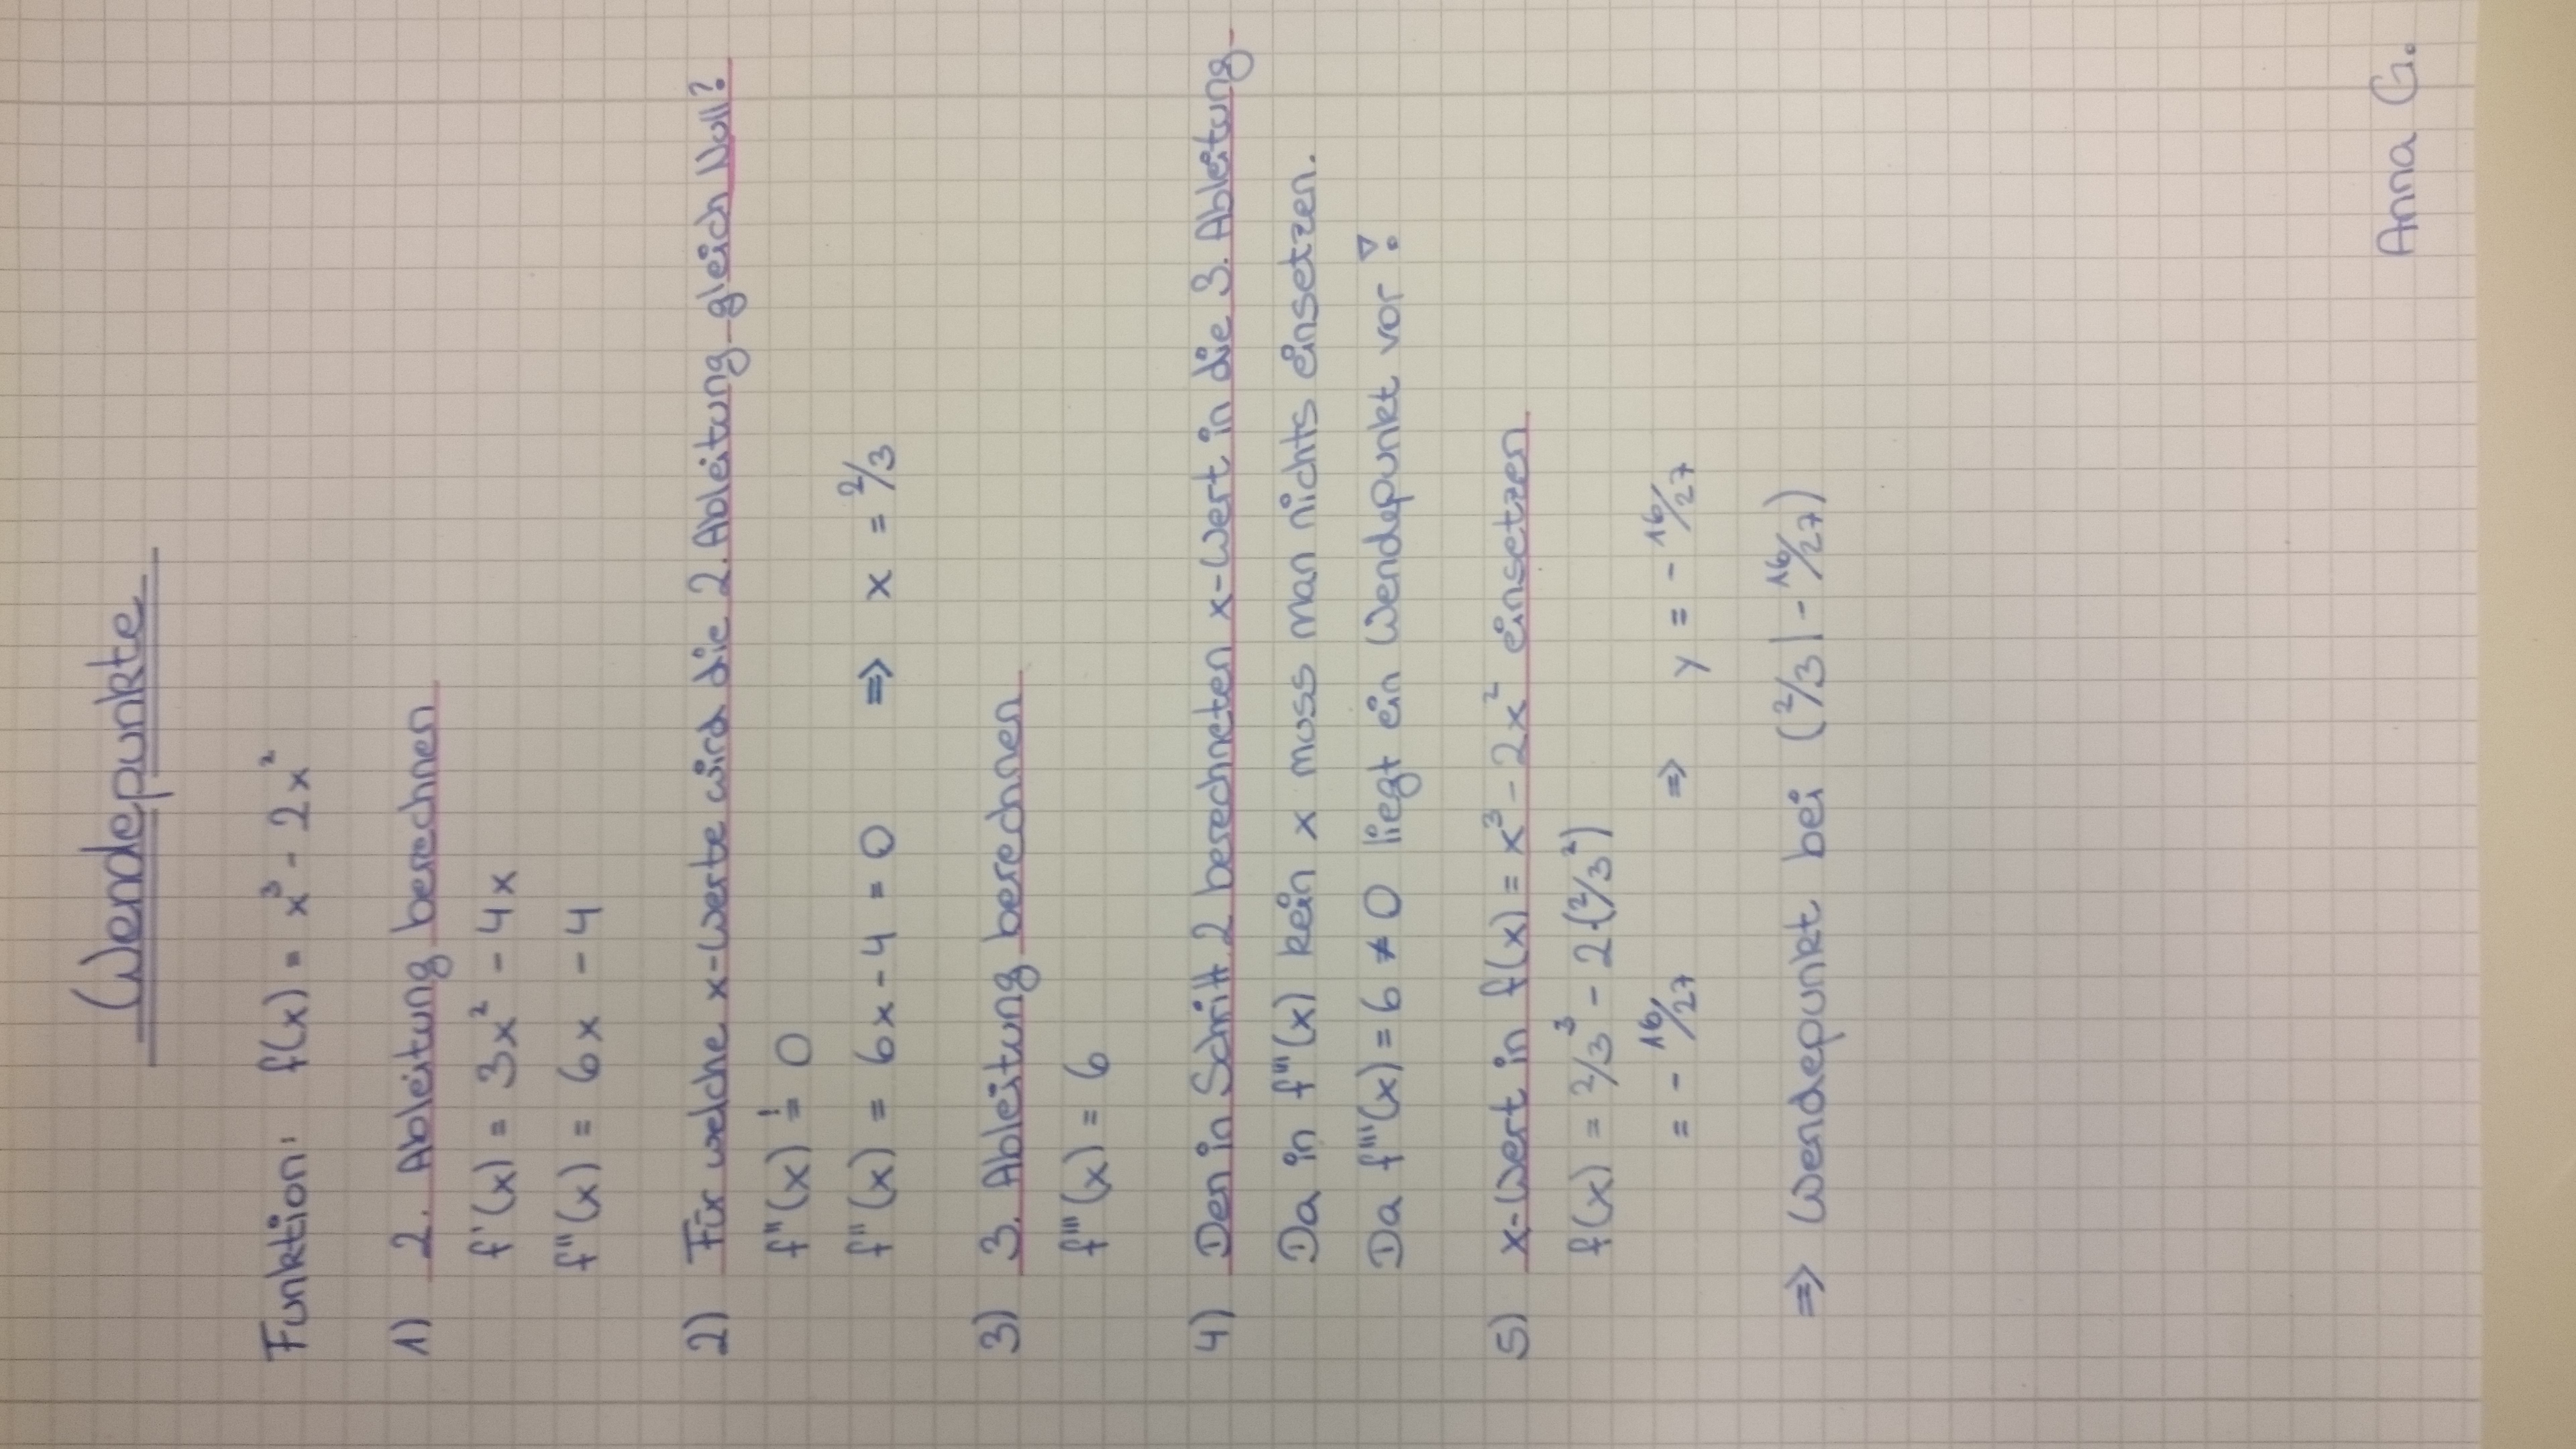 Wendepunkte
Funktion: f(x) = x³ - 2x²
1) 2. Ableitung berechnen
f'(x) = 3x² - 4x
f''(x) = 6x - 4
2) Für welche x-Werte wird die 2. Ableitung gleich Null?
f''(x) =! 0
f''(x) = 6x - 4 = 0 ⇒ x = 2/3
3) 3. Ableitung berechnen
f'''(x) = 6
4) Den in Schritt 2 berechneten x-Wert in die 3. Ableitung
Da in f'''(x) kein x muss man nichts einsetzen.
Da f'''(x) = 6 ≠ 0 liegt ein Wendepunkt vor!
5) x-Wert in f(x) = x³ - 2x² einsetzen
f(x) = 2/3³ - 2·(2/3²)
= - 16/27 ⇒ y = - 16/27
⇒ Wendepunkt bei (2/3 | - 16/27)
Anna G.